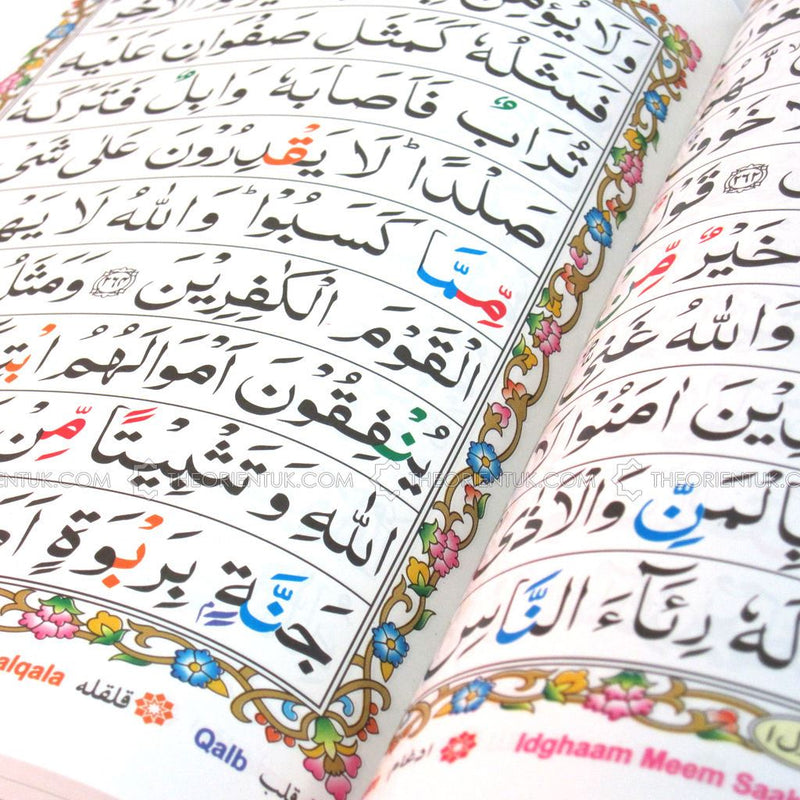 لَّهُمْ
خَوْفٌ
قَوْلٌ ٢٦٢
خَيْرٌ مِّنْ
وَاللّٰهُ غَنِيٌّ
اٰمَنُوْا
بِالْمَنِّ وَالْاَذٰى
لَهٗ رِئَآءَ النَّاسِ
ادغام Idghaam Meem Saak
وَلَا يُؤْمِنُ الْاٰخِرِ
فَمَثَلُهٗ كَمَثَلِ صَفْوَانٍ عَلَيْهِ
تُرَابٌ فَاَصَابَهٗ وَابِلٌ فَتَرَكَهٗ
صَلْدًا ؕ لَا يَقْدِرُوْنَ عَلٰى شَىْ
مِّمَّا كَسَبُوْا ؕ وَاللّٰهُ لَا يَهْ
الْقَوْمَ الْكٰفِرِيْنَ ٢٦٤ وَمَثَلُ
يُنْفِقُوْنَ اَمْوَالَهُمُ ابْتِ
اللّٰهِ وَتَثْبِيْتًا مِّنْ
جَنَّةٍۭ بِرَبْوَةٍ اَصَ
قلقله alqala
قلب Qalb
THEORIENTUK.COM THEORIENTUK.COM THEORIENTUK.COM THEORIENTUK.COM